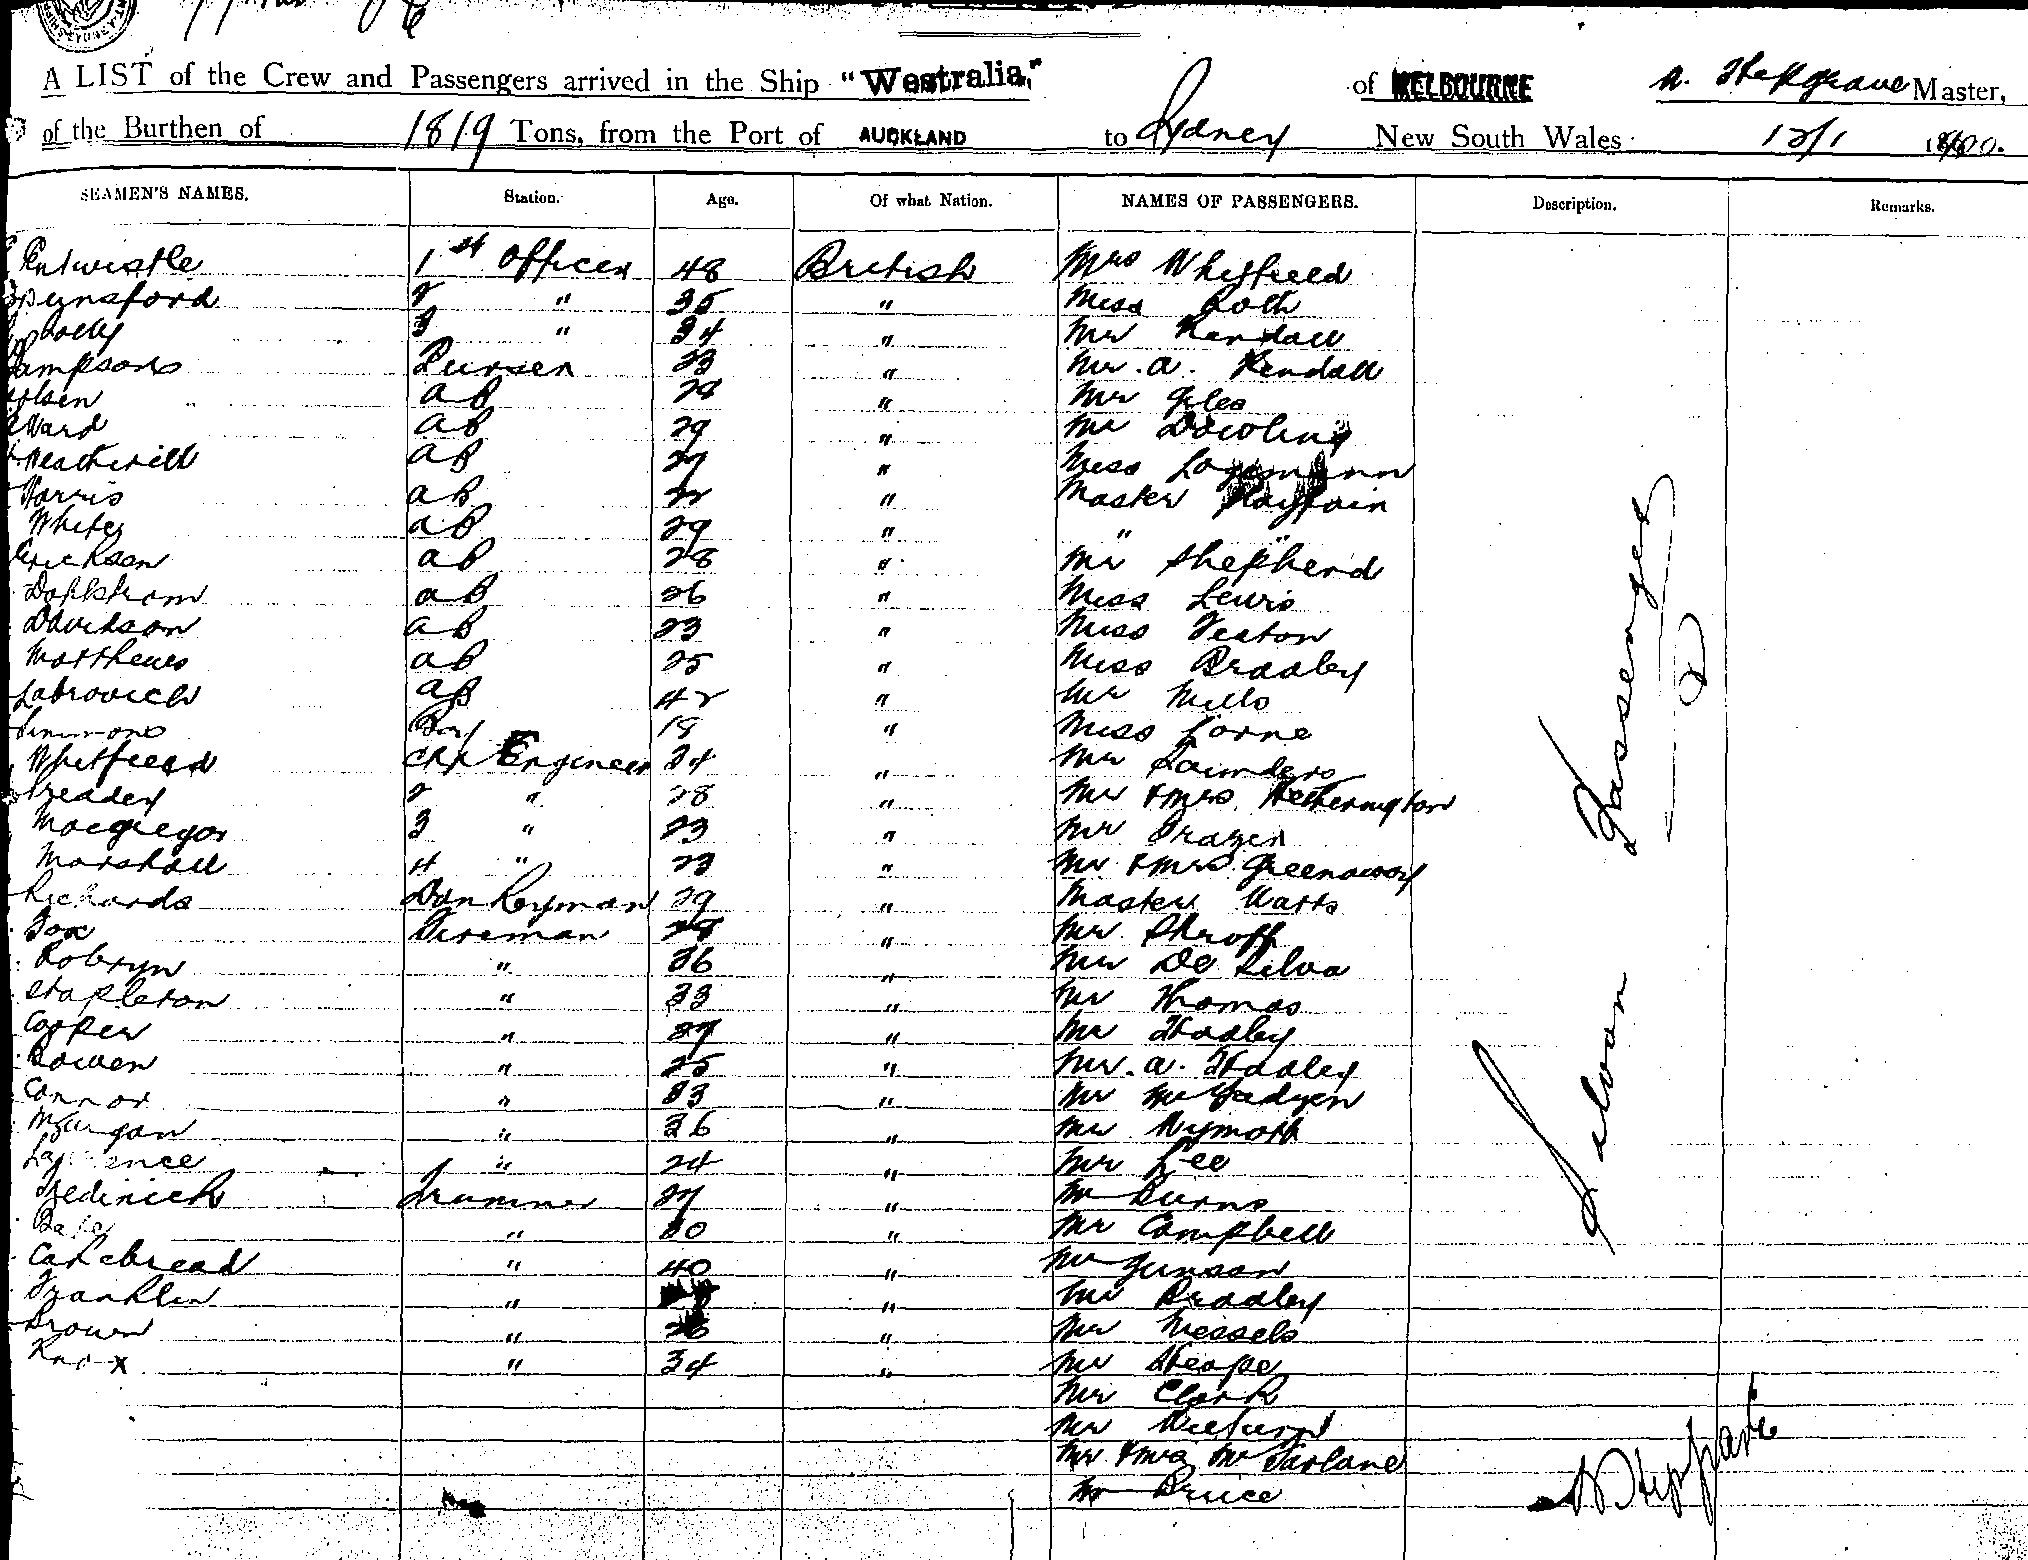 A LIST of the Crew and Passengers arrived in the Ship "Westralia," of MELBOURNE Master,
of the Burthen of 1819 Tons, from the Port of AUCKLAND to Sydney New South Wales 12/1 1900.
SEAMEN'S NAMES. Station. Age. Of what Nation. NAMES OF PASSENGERS. Description. Remarks.
Entwistle 1st Officer 48 British Mrs Whitfield
2 " 35 " Miss
3 " 34 " Mr Kendall
Sampson Purser 23 " Mr. A. Kendall
Olsen AB 28 " Mr Giles
Ward AB 29 " Mr Dowling
Weatherill AB 27 " Miss Logemann
Norris AB 22 " Master Playfair
White AB 29 " " "
Erickson AB 28 " Mr Shepherd
AB 26 " Miss Lewis
Davidson AB 23 " Miss
Matthews AB 25 " Miss Bradley
AB 42 " Mr Mills
Simmons Boy 18 " Miss Lorne
Whitfield Chf Engineer 34 " Mr Saunders
Treadey 2 " 28 " Mr & Mrs Hetherington
Macgregor 3 " 23 " Mr Frazer
Marshall 4 " 23 " Mr & Mrs Greenaway
Richards Donkeyman 29 " Master Watts
Fox Fireman 28 " Mr Shroff
Robryn " 36 " Mr De Silva
Stapleton " 33 " Mr Thomas
Cooper " 27 " Mr Hadley
Bowen " 25 " Mr. A. Hadley
Connor " 33 " Mr McFadyen
Morgan " 36 " Mr
" 24 " Mr Lee
Trimmer 27 " Mr Burns
" 30 " Mr Campbell
Cakebread " 40 " Mr Junson
Franklin " " Mr Bradley
Brown " 26 " Mr Wessels
Knox " 34 " Mr Heape
Mr Clark
Mr
Mr & Mrs McFarlane
Mr Bruce
Saloon Passengers